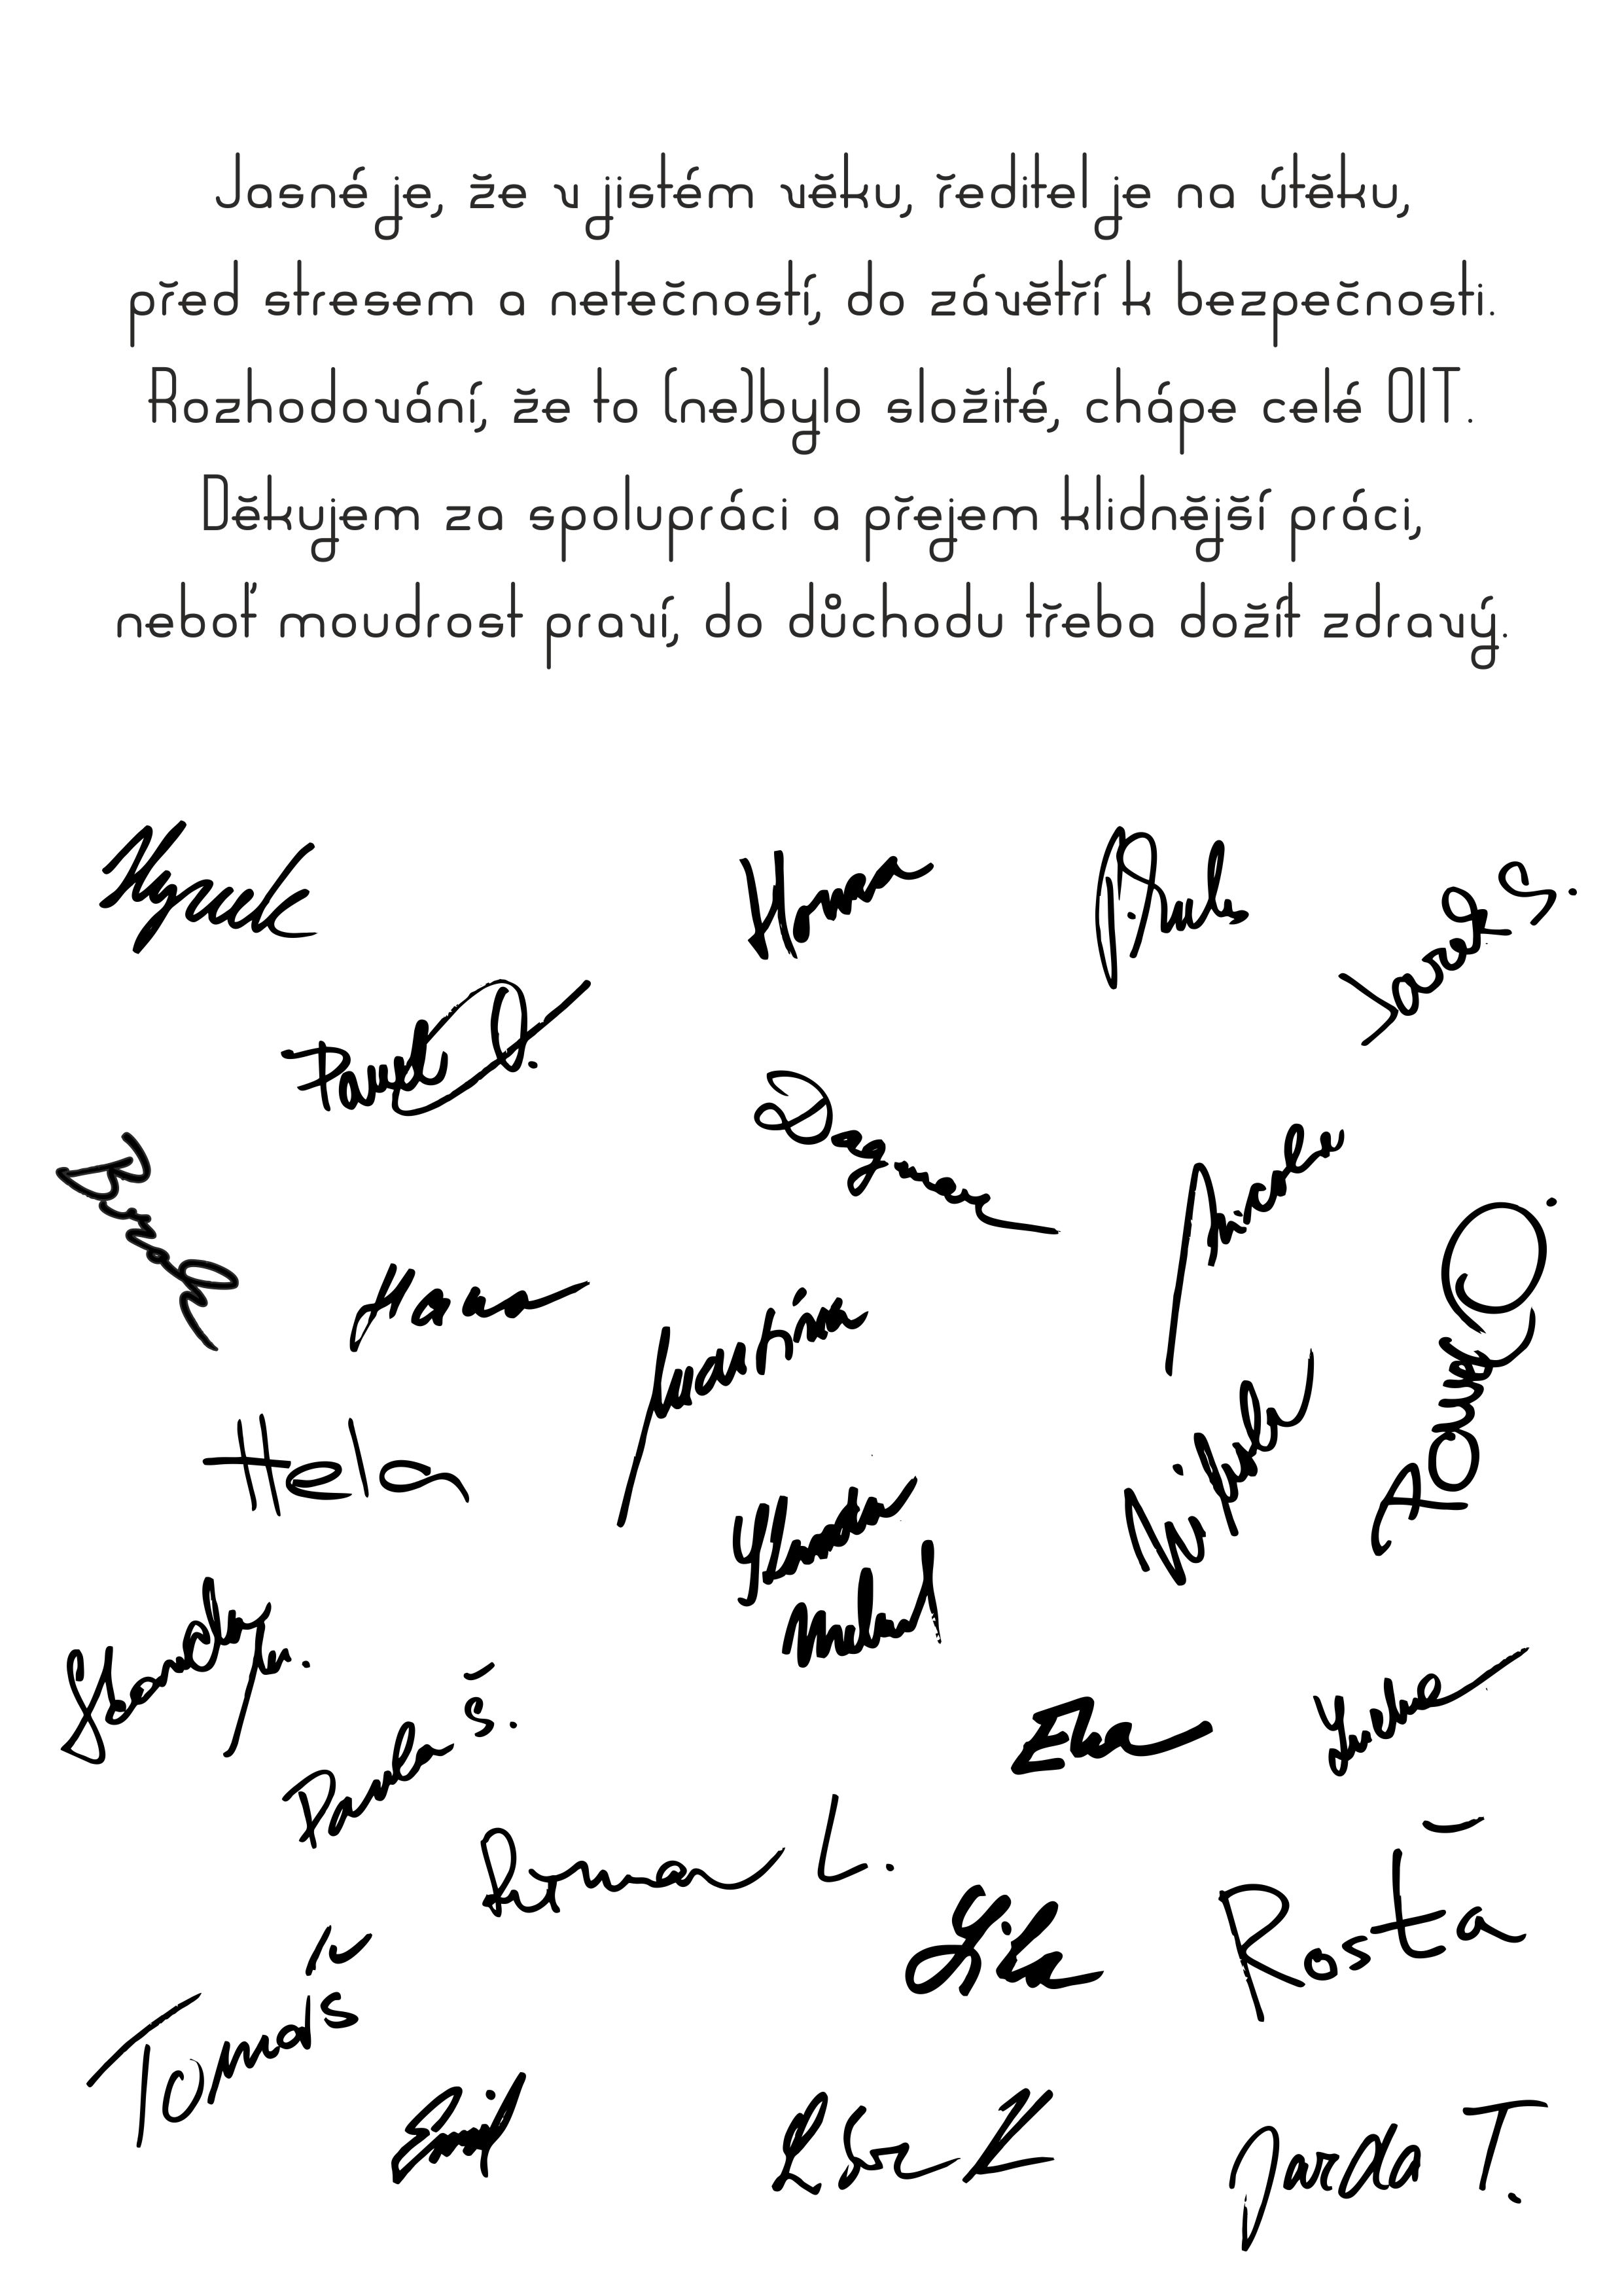 Jasné je, že v jistém věku, ředitel je na útěku,
před stresem a netečností, do závětří k bezpečnosti.
Rozhodování, že to (ne)bylo složité, chápe celé OIT.
Děkujem za spolupráci a přejem klidnější práci,
neboť moudrost praví, do důchodu třeba dožít zdravý.
Hynek
Hana
Jarek S.
Pavel
Dagmar
Hana
Martina
Hela
Nikola
Standa
Pavla Š.
Roman L.
Rosťa
Tomáš
Emil
Jarda T.